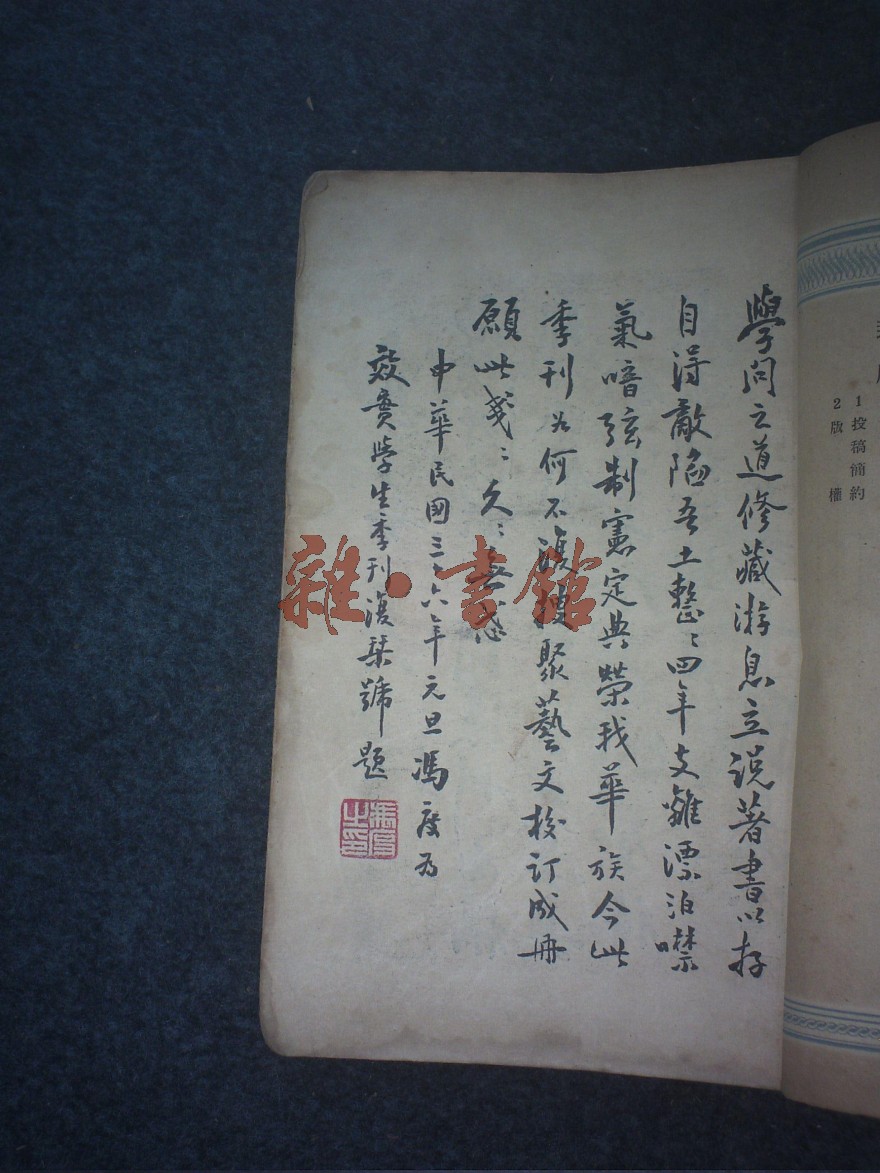 1 投稿簡約
2 版權
學問之道修藏游息立說著書以抒
自得敵陷吾土整〻四年支離漂泊噤
氣喑弦制憲定典榮我華族今此
季刊為何不復搜聚藝文校訂成冊
願此戔〻久〻無
中華民國三十六年元旦馮度為
效實學生季刊復栞號題
馮度之印
雜·書館